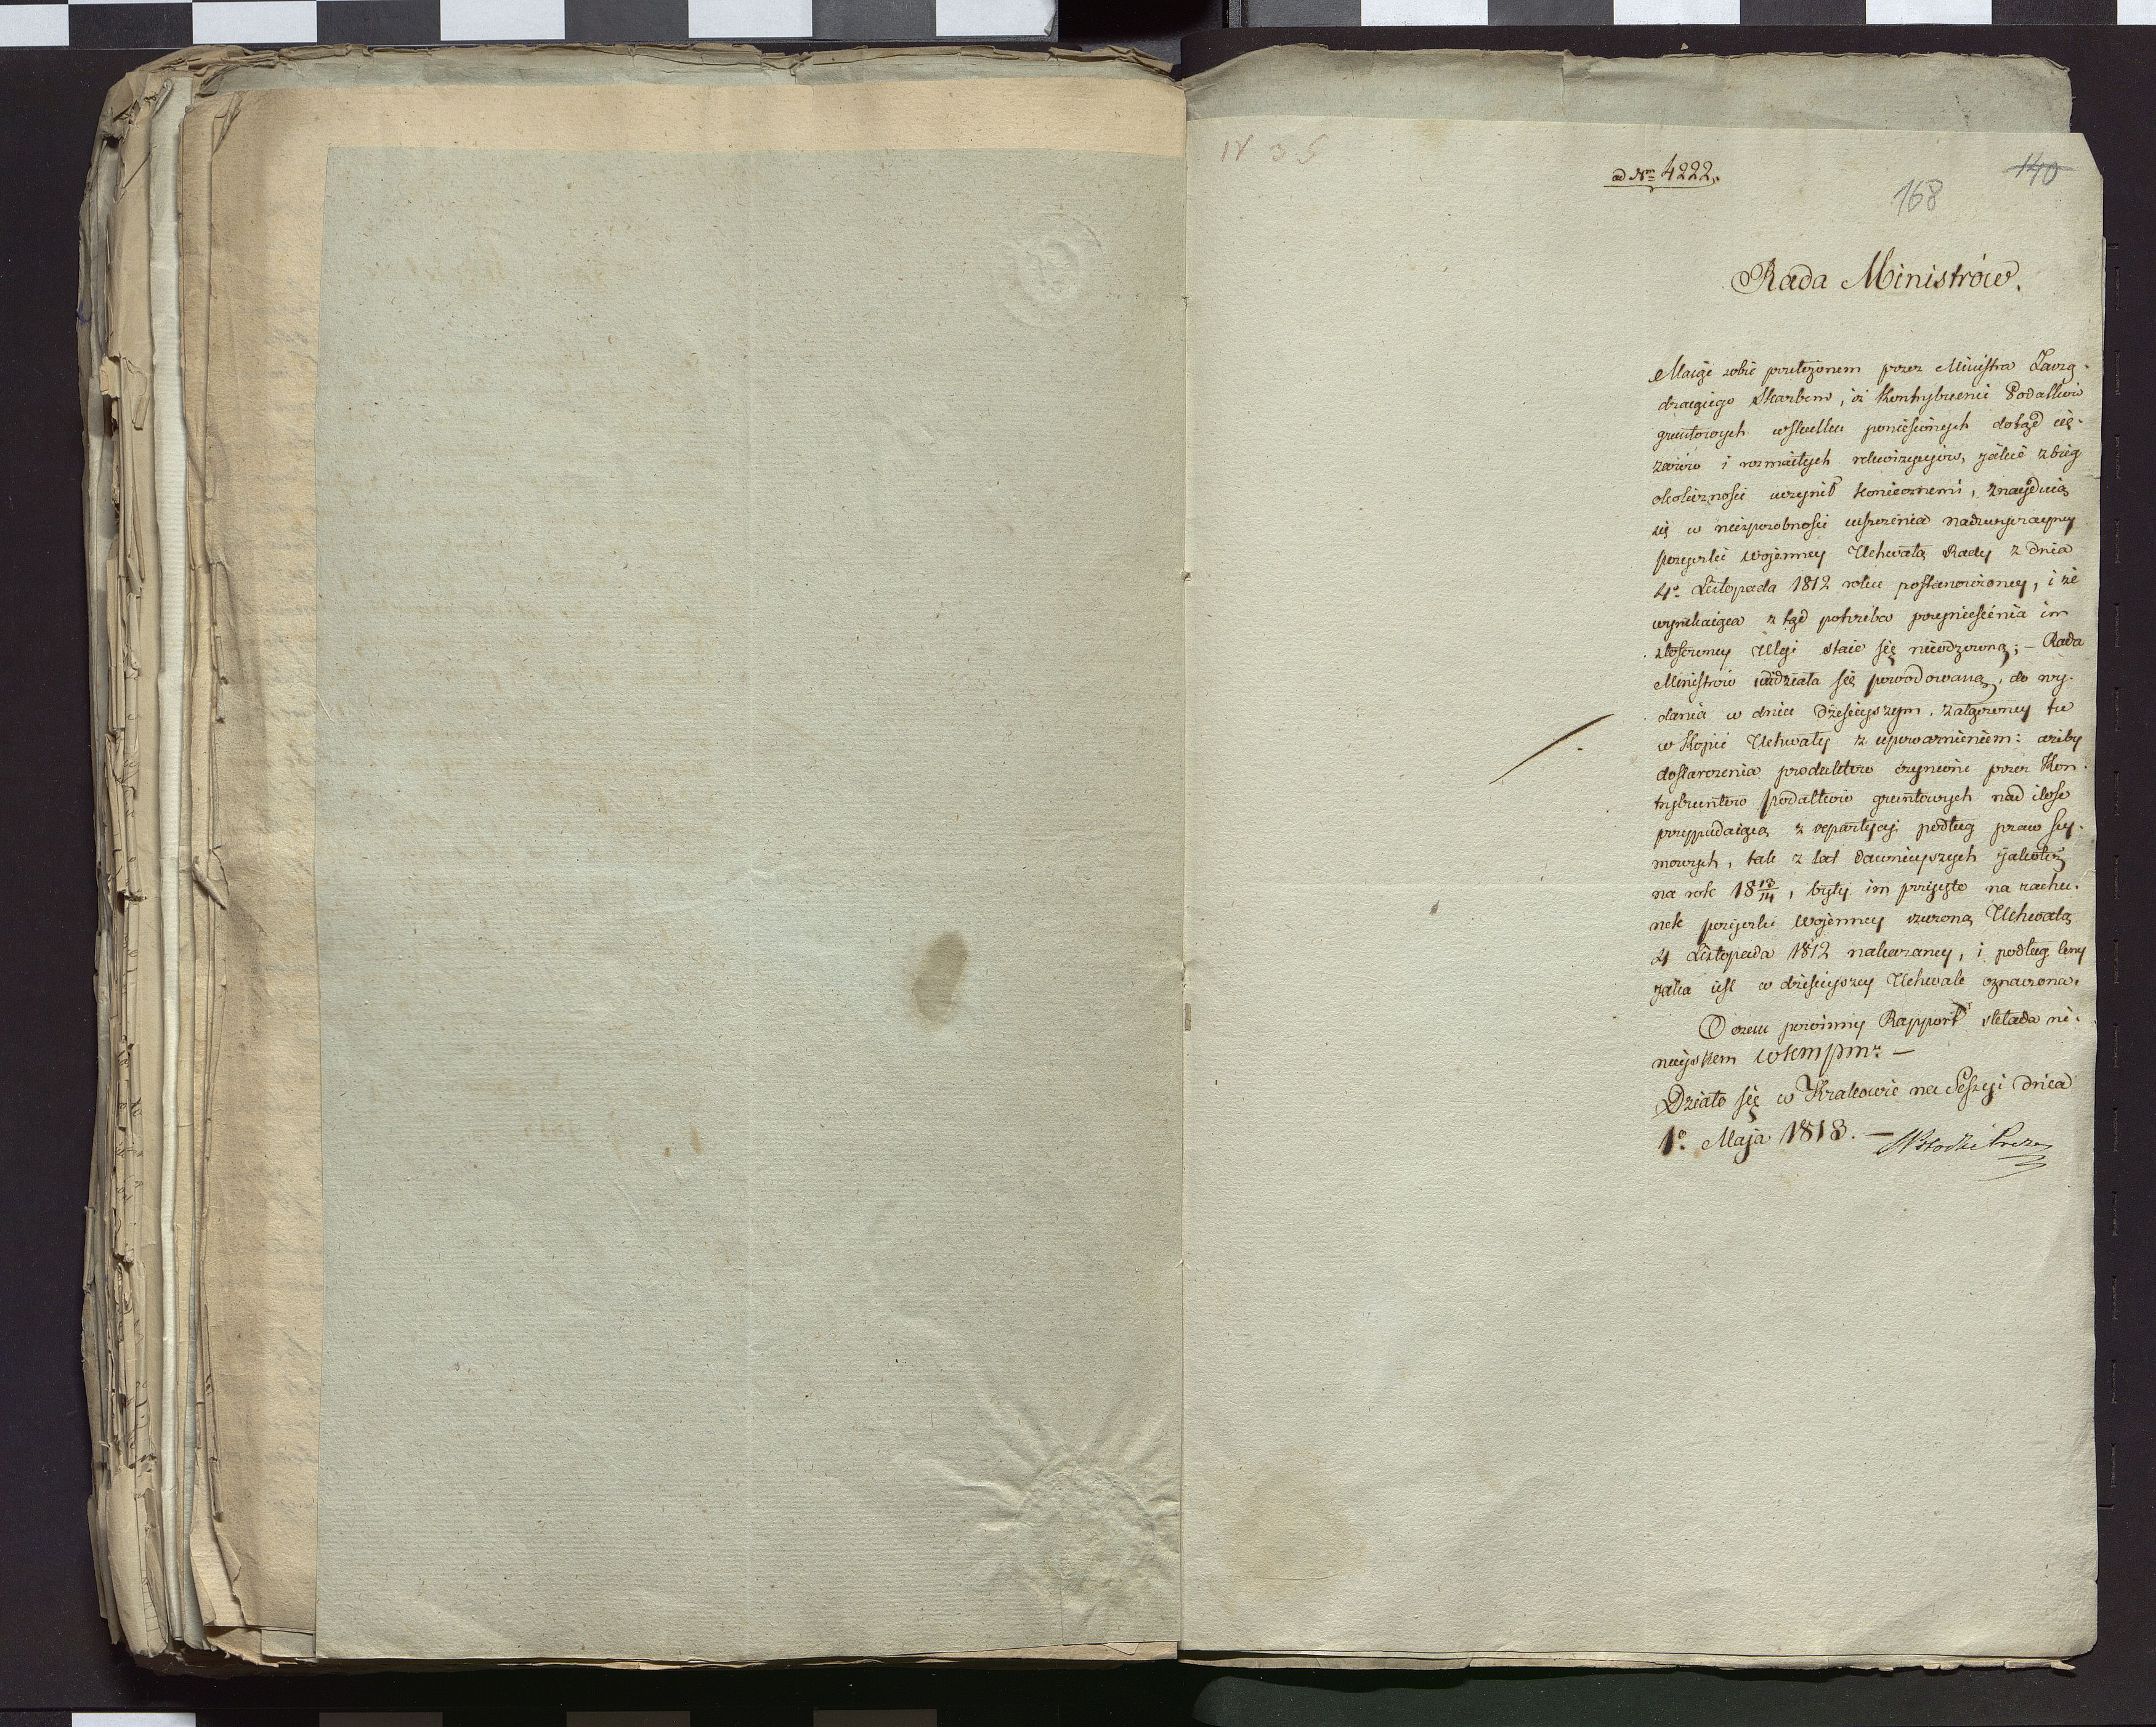 IV 3 5
ad Nrm 4222.
140
168
Rada Ministrów.
Maiąc sobie przełożonem przez Ministra Zarzą-
dzaiącego Skarbem, iż Kontrybuenci Podatków
gruntowych wskutku poniesionych dotąd cię-
żarów i rozmaitych rekwizycyiów, jakie zbieg
okoliczności uczynił koniecznemi, znayduią
się w niesposobności uiszczenia nadzwyczayney
pożyczki wojenney Uchwałą Rady z dnia
4o Listopada 1812 roku postanowioney, i że
wynikaiąca z tąd potrzeba przyniesienia im
stosowney Ulgi staie się nieodzowną; - Rada
Ministrów widziała się powodowaną, do wy-
dania w dniu dzisieyszym załączoney tu
w Kopii Uchwały z upoważnieniem: ażeby
dostarczenia produktów czynione przez Kon-
trybuentów podatków gruntowych nad ilość
przypadaiącą z repartycyi podług praw Sey-
mowych, tak z lat dawnieyszych jakoteż
na rok 18 13/14, były im przyięte na rachu-
nek pożyczki Wojenney rzeczoną Uchwałą
4 Listopada 1812 nakazaney, i podług ceny
jaka iest w dzisieyszey Uchwale oznaczona.
O czem powinny Rapport składa ni-
nieyszem
Działo się w Krakowie na Sessyi dnia
1o Maja 1813. —